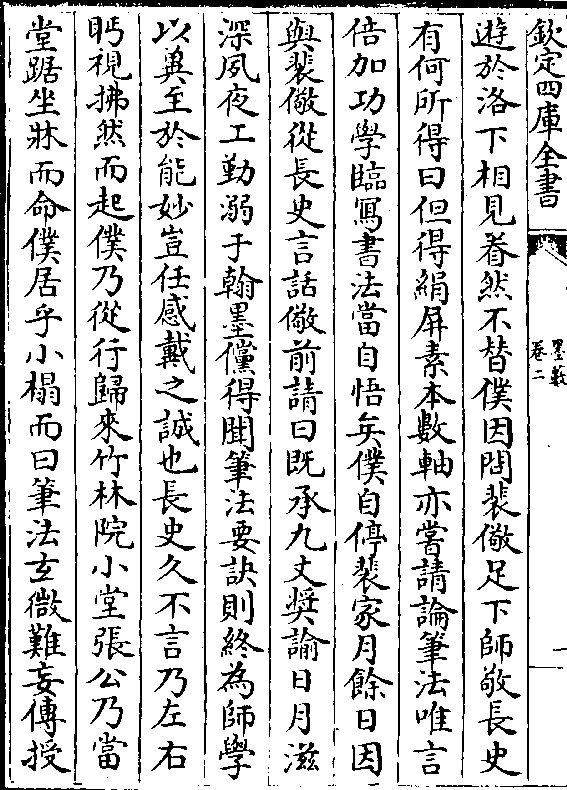 欽定四庫全書
墨藪
卷二
一
遊於洛下相見眷然不替僕因問裴儆足下師敬長史
有何所得曰但得絹屏素本數軸亦嘗請論筆法唯言
倍加功學臨寫書法當自悟矣僕自停裴家月餘日因
與裴儆從長史言話儆前請曰既承九丈奬諭日月滋
深夙夜工勤溺于翰墨儻得聞筆法要訣則終為師學
以冀至於能妙豈任感戴之誠也長史久不言乃左右
眄視拂然而起僕乃從行歸來竹林院小堂張公乃當
堂踞坐牀而命僕居乎小榻而曰筆法玄微難妄傳授